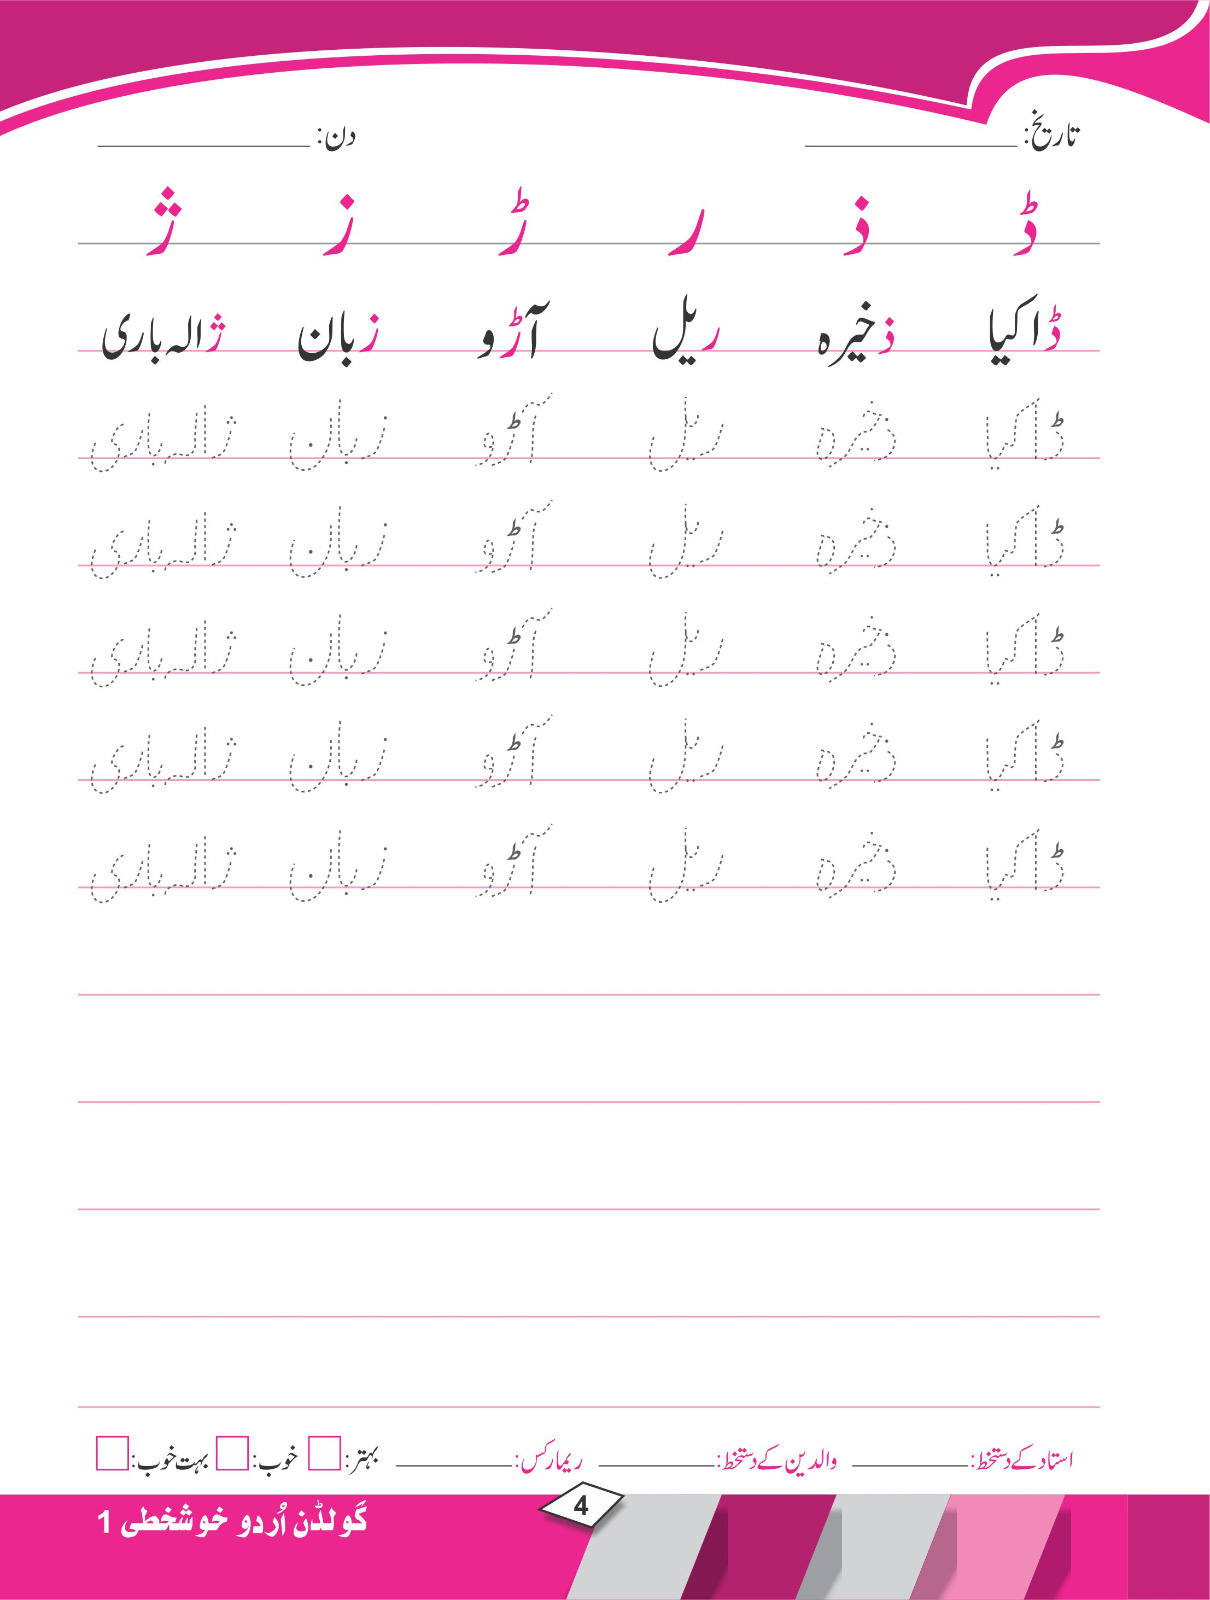 تاریخ: ____________ دن: ____________
ڈ ذ ر ڑ ز ژ
ڈاکیا ذخیرہ ریل آڑو زبان ژالہ باری
ڈاکیا ذخیرہ ریل آڑو زبان ژالہ باری
ڈاکیا ذخیرہ ریل آڑو زبان ژالہ باری
ڈاکیا ذخیرہ ریل آڑو زبان ژالہ باری
ڈاکیا ذخیرہ ریل آڑو زبان ژالہ باری
ڈاکیا ذخیرہ ریل آڑو زبان ژالہ باری
استاد کے دستخط: ________ والدین کے دستخط: ________ ریمارکس: ________ بہتر: خوب: بہت خوب:
4
گولڈن اُردو خوشخطی 1